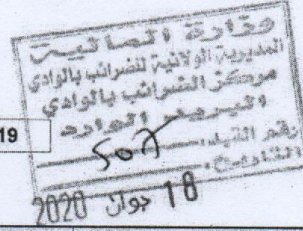 وزارة المالية
المديرية الولائية للضرائب بالوادي
مركز الضرائب بالوادي
البريد الوارد
رقم القيد: 507
التاريخ:
18 جوان 2020
19